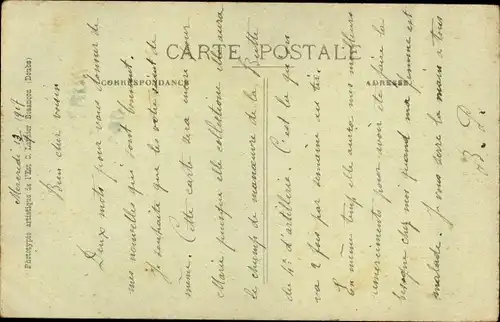 CARTE POSTALE
CORRESPONDANCE
ADRESSE
Phototypie artistique de l'Est C. Lardier Besançon (Doubs)
Mercredi 12 1917
Bien cher voisin
Deux mots pour vous donner de
mes nouvelles qui sont bonnes.
Je souhaite que les vôtres soient de
même. Cette carte sera encore pour
Marie puisque elle collectionne elle aura
le champ de manœuvre de la Butte
du 4e d'artillerie. C'est là qu'on
va 2 fois par semaine au tir.
En même temps elle aura mes meilleurs
remerciements pour avoir été faire la
besogne chez moi quand ma femme est
malade. Je vous serre la main à tous